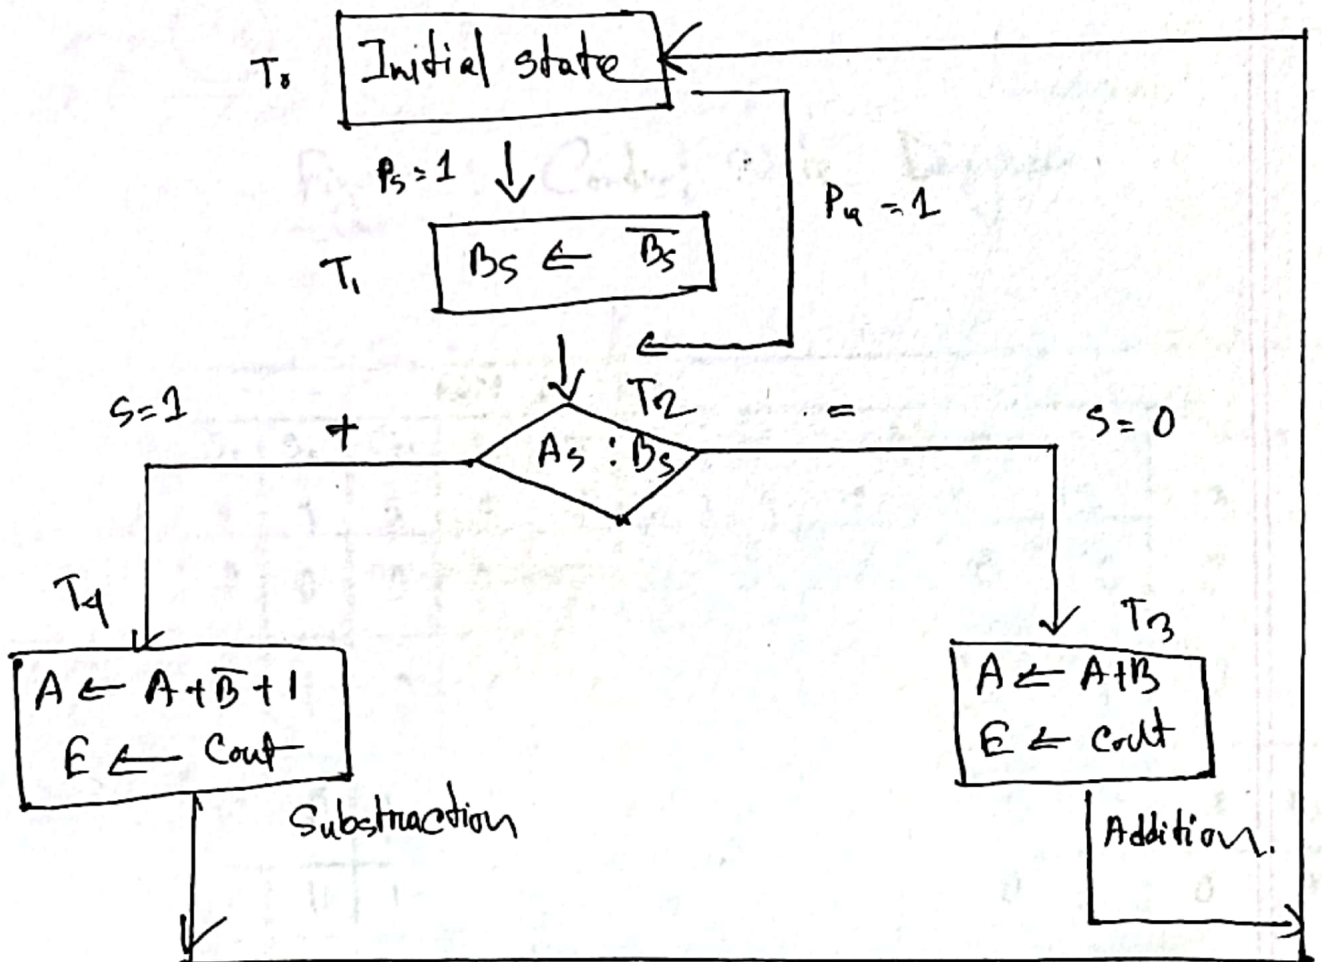 T₀ Initial state
Pₛ = 1
Pₐ = 1
T₁ Bₛ ← B̅ₛ
T₂
S=1 + Aₛ : Bₛ = S= 0
T₄
A ← A + B̅ + 1
E ← Cout
Substraction
T₃
A ← A+B
E ← Cout
Addition.